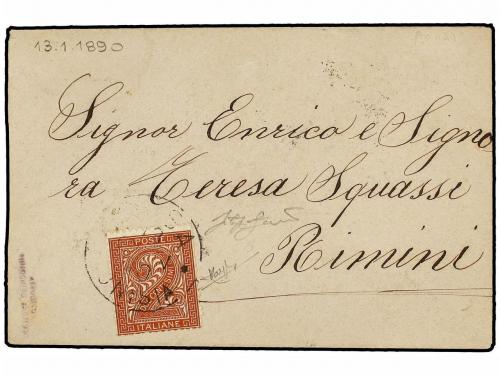 13.1.1890
Signor Enrico e Signo
ra Teresa Squassi
Rimini
POSTE
2
ITALIANE